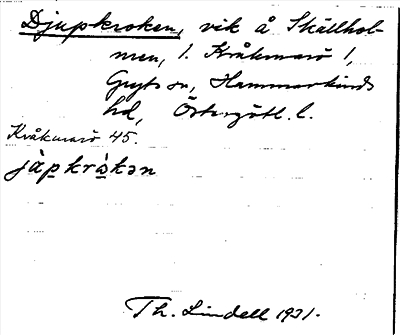 Djupkroken, vik å Skällhol-
men, l. Kråkmarö 1,
Gryts sn, Hammarkinds
hd, Östergötl. l.
Kråkmarö 45.
jàpkrὰkən
Th. Lindell 1931.